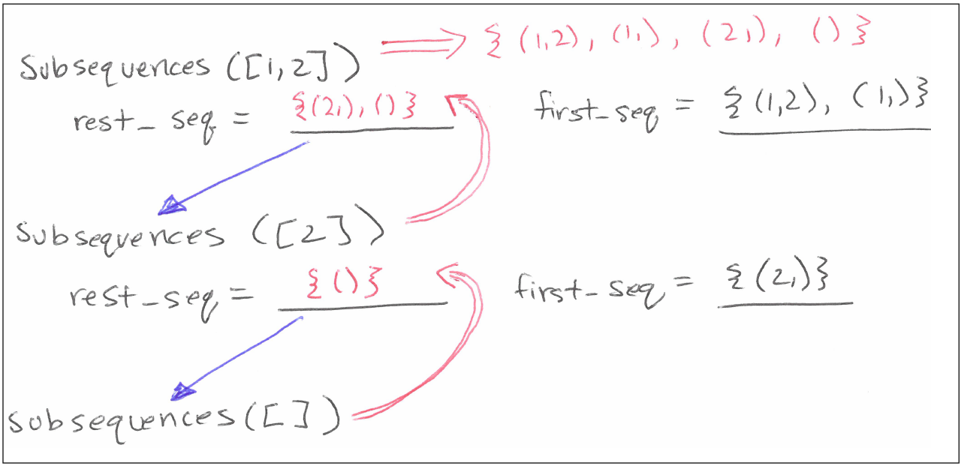 Subsequences ([1,2]) ⟹ {(1,2), (1,), (2,), ()}
rest_seq = {(2,), ()} first_seq = {(1,2), (1,)}
Subsequences ([2])
rest_seq = {()} first_seq = {(2,)}
Subsequences([])